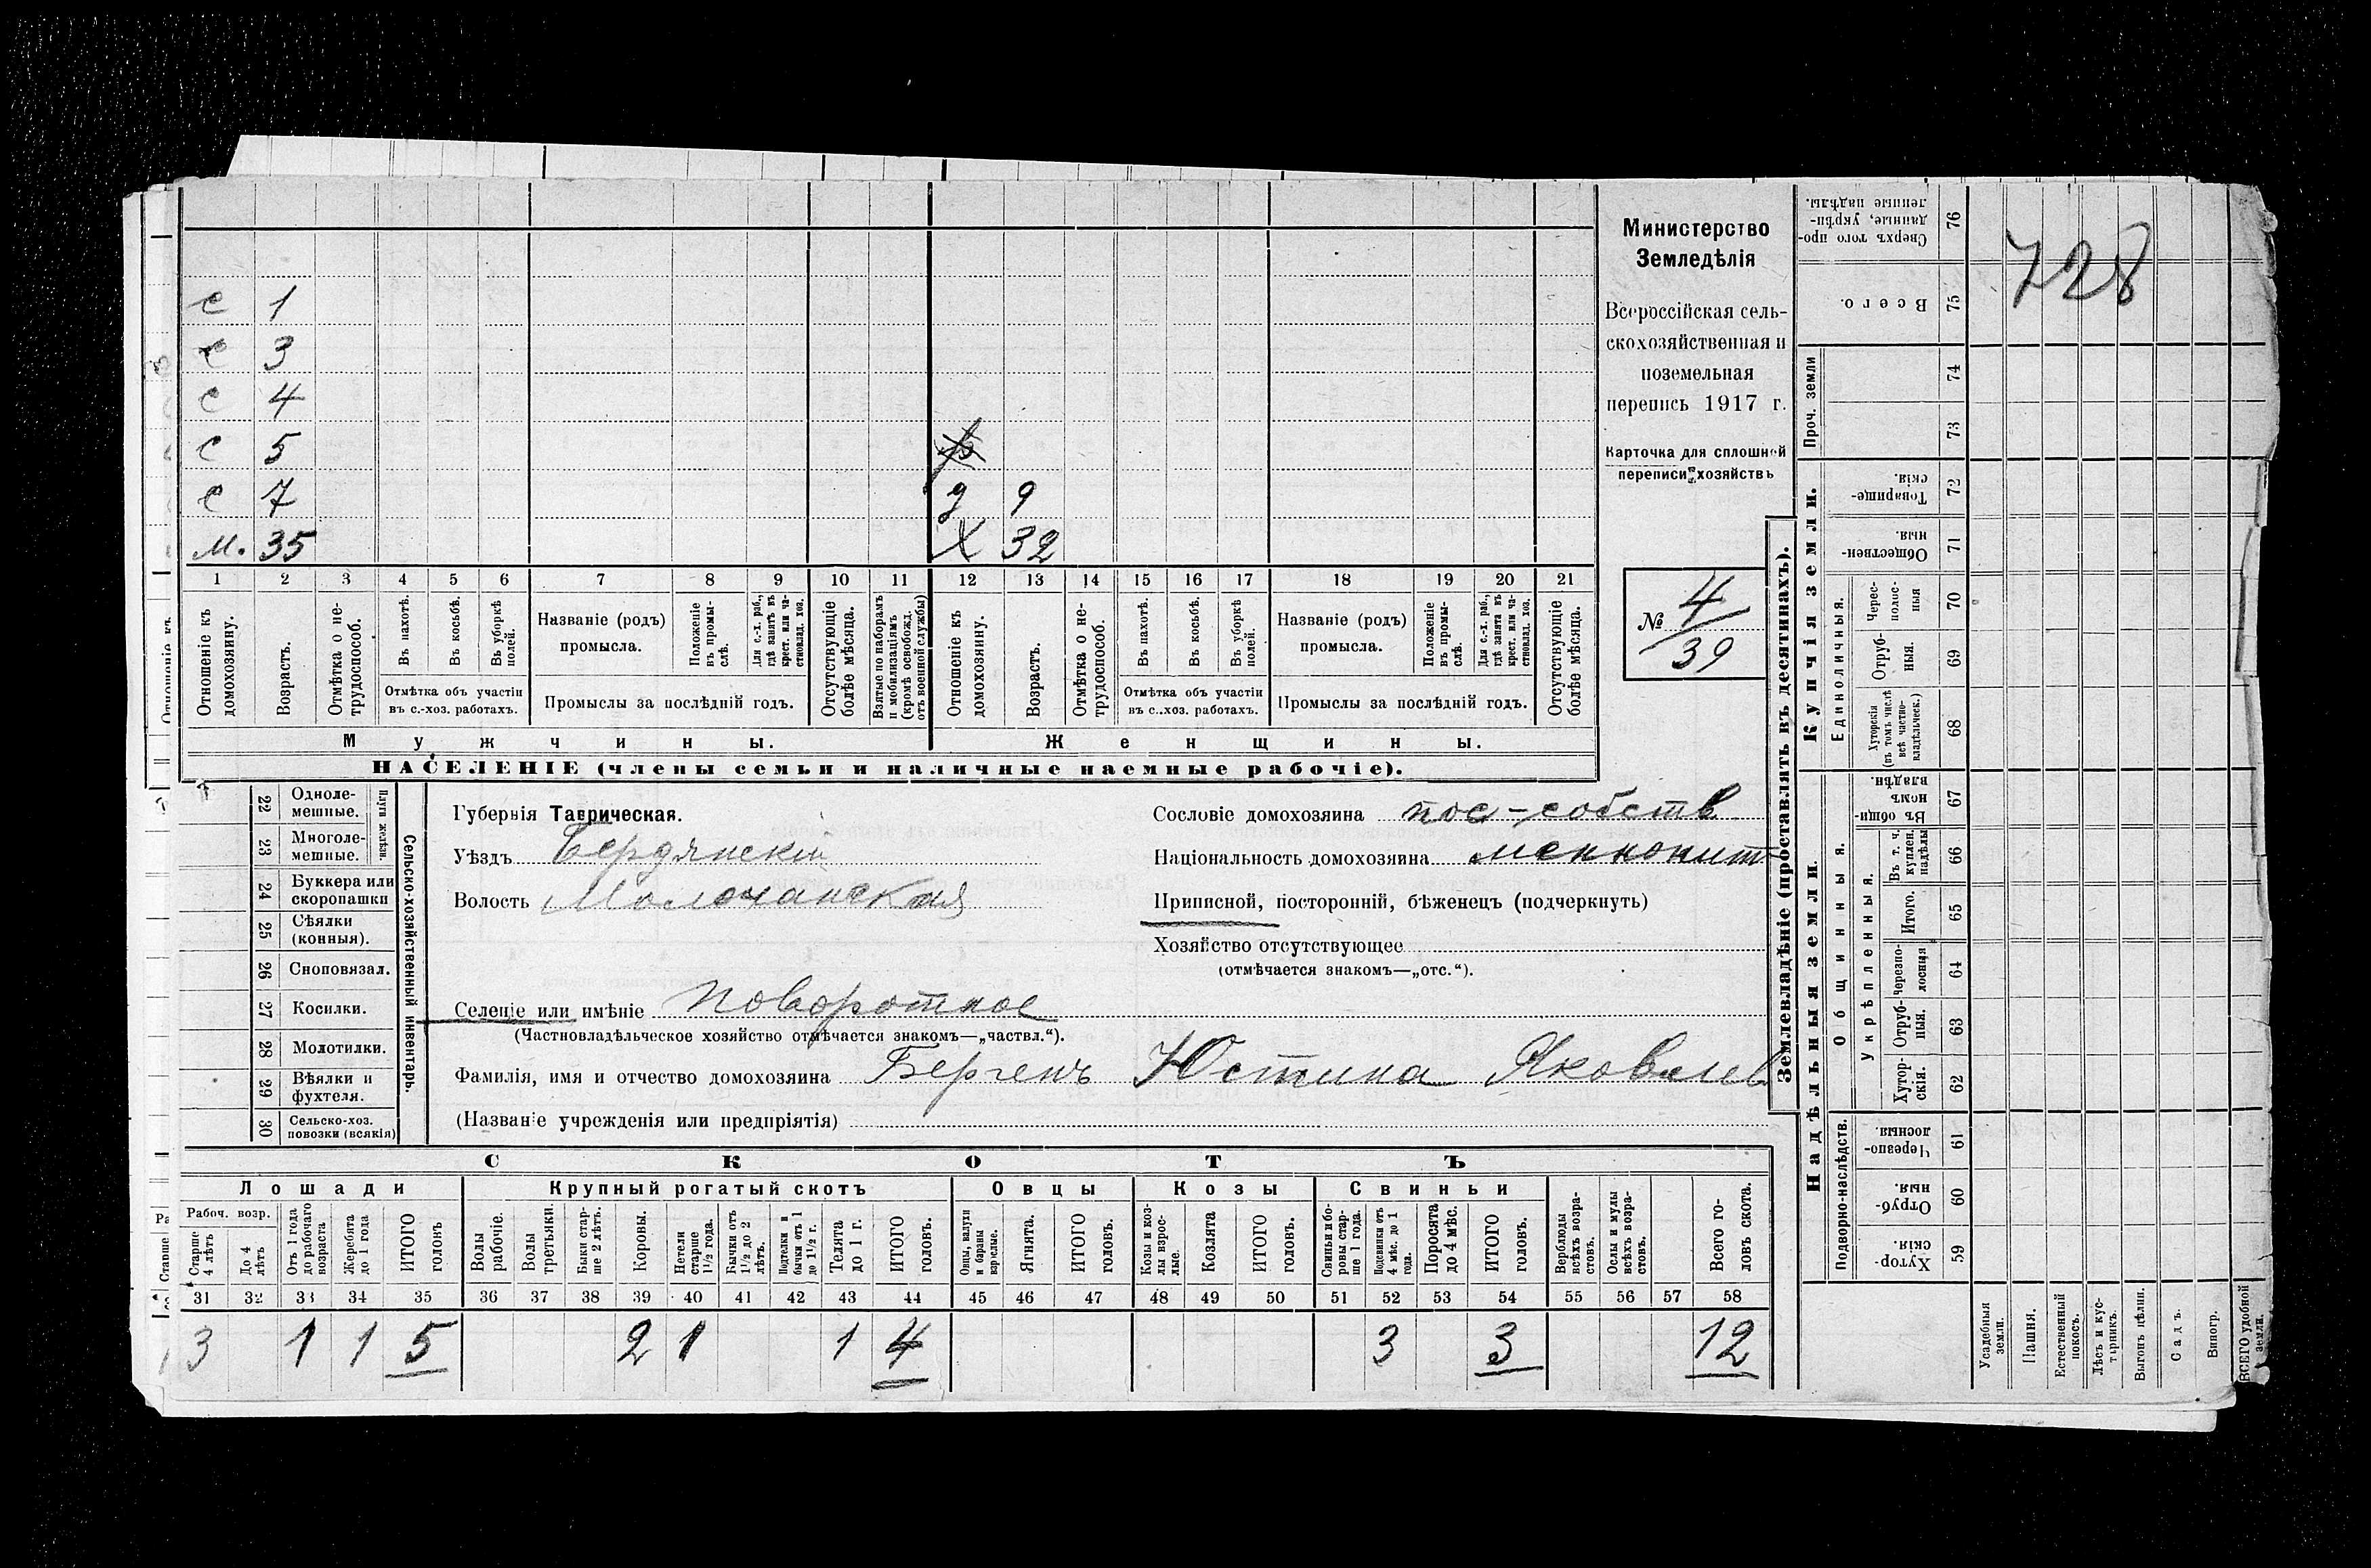 с 1
с 3
с 4
с 5
с 7 д 9
м. 35 Х 32
1 2 3 4 5 6 7 8 9 10 11 12 13 14 15 16 17 18 19 20 21
Отношеніе къ домохозяину.
Возрастъ.
Отмѣтка о не-трудоспособ.
Въ пахотѣ.
Въ косьбѣ.
Въ уборкѣ полей.
Отмѣтка объ участіи
въ с.-хоз. работахъ.
Названіе (родъ)
промысла.
Положеніе въ промы-слѣ.
Для с.-х. раб., гдѣ занятъ въ крест. или ча-стновлад. хоз.
Промыслы за послѣдній годъ.
Отсутствующіе болѣе мѣсяца.
Взятые по наборамъ и мобилизаціямъ (кромѣ освобожд. отъ военной службы)
Отношеніе къ домохозяину.
Возрастъ.
Отмѣтка о не-трудоспособ.
Въ пахотѣ.
Въ косьбѣ.
Въ уборкѣ полей.
Отмѣтка объ участіи
въ с.-хоз. работахъ.
Названіе (родъ)
промысла.
Положеніе въ промы-слѣ.
Для с.-х. раб., гдѣ занята въ крест. или ча-стновлад. хоз.
Промыслы за послѣдній годъ.
Отсутствующіе болѣе мѣсяца.
Мужчины. Женщины.
НАСЕЛЕНІЕ (члены семьи и наличные наемные рабочіе).
Министерство
Земледѣлія
Всероссійская сель-
скохозяйственная и
поземельная
перепись 1917 г.
Карточка для сплошной
переписи хозяйствъ
№ 4
39
22 Одноле-
мешные.
23 Многоле-
мешные.
Плуги желѣзн.
24 Буккера или
скоропашки
25 Сѣялки
(конныя).
26 Сноповязал.
27 Косилки.
28 Молотилки.
29 Вѣялки и
фухтеля.
30 Сельско-хоз.
повозки (всякія)
Сельско-хозяйственный инвентарь.
Губернія Таврическая.
Уѣздъ Бердянскій
Волость Молочанская
Селеніе или имѣніе Поворотное
(Частновладѣльческое хозяйство отмѣчается знакомъ—„частвл.“).
Фамилія, имя и отчество домохозяина Бергенъ Юстина Яковлев
(Названіе учрежденія или предпріятія)
Сословіе домохозяина пос-собств
Національность домохозяина меннонит
Приписной, посторонній, бѣженецъ (подчеркнуть)
Хозяйство отсутствующее
(отмѣчается знакомъ—„отс.“).
СКОТЪ
Лошади Крупный рогатый скотъ Овцы Козы Свиньи
Рабоч. возр.
Старше 4 лѣтъ
До 4 лѣтъ
Отъ 1 года до рабочаго возраста
Жеребята до 1 года
ИТОГО головъ
Волы рабочіе.
Волы третьяки.
Быки стар-ше 2 лѣтъ.
Коровы.
Нетели старше 1½ года.
Бычки отъ 1½ до 2 лѣтъ.
Подтелки и бычки отъ 1 до 1½ г.
Телята до 1 г.
ИТОГО головъ.
Овцы, валухи и бараны взрослые.
Ягнята.
ИТОГО головъ.
Козы и коз-лы взрос-лые.
Козлята
ИТОГО головъ.
Свиньи и бо-ровы стар-ше 1 года.
Подсвинки отъ 4 мѣс. до 1 года.
Поросята до 4 мѣс.
ИТОГО головъ.
Верблюды всѣхъ возра-стовъ.
Ослы и мулы всѣхъ возра-стовъ.
Всего го-ловъ скота.
31 32 33 34 35 36 37 38 39 40 41 42 43 44 45 46 47 48 49 50 51 52 53 54 55 56 57 58
3 1 1 5 2 1 1 4 3 3 12
Землевладѣніе (проставлять въ десятинахъ).
Купчія земли.
Надѣльныя земли.
Проч. земли
Единоличныя.
Общинныя.
Укрѣпленныя.
Подворно-наслѣдств.
Сверхъ того про-данные, укрѣп-ленные надѣлы. 76
Всего. 75
74
73
Товарище-скія. 72
Обществен-ныя. 71
Черес-полос-ныя 70
Отруб-ныя. 69
Хуторскія (въ томъ числѣ всѣ частно-владѣльческ.) 68
Въ общин-номъ владѣн. 67
Въ т. ч. куплен. надѣлы 66
Итого. 65
Черезпо-лосныя 64
Отруб-ныя. 63
Хутор-скія. 62
Черезпо-лосныя. 61
Отруб-ныя. 60
Хутор-скія. 59
Усадебныя земли.
Пашня.
Естественный покосъ.
Лѣсъ и кус-тарникъ.
Выгонъ цѣлин.
Садъ.
Виногр.
ВСЕГО удобной земли.
728